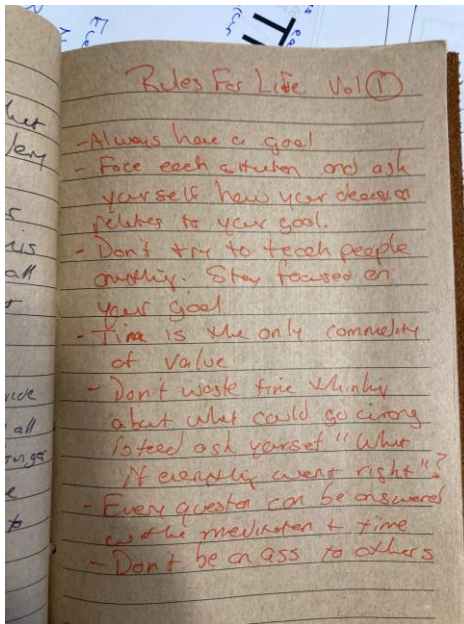 Rules For Life Vol ①
- Always have a goal
- Face each situation and ask
yourself how your decision
relates to your goal.
- Don't try to teach people
anything. Stay focused on
your goal
- Time is the only commodity
of value
- Don't waste time thinking
about what could go wrong
instead ask yourself "What
if everything went right"?
- Every question can be answered
with meditation + time
- Don't be an ass to others
all
all
to